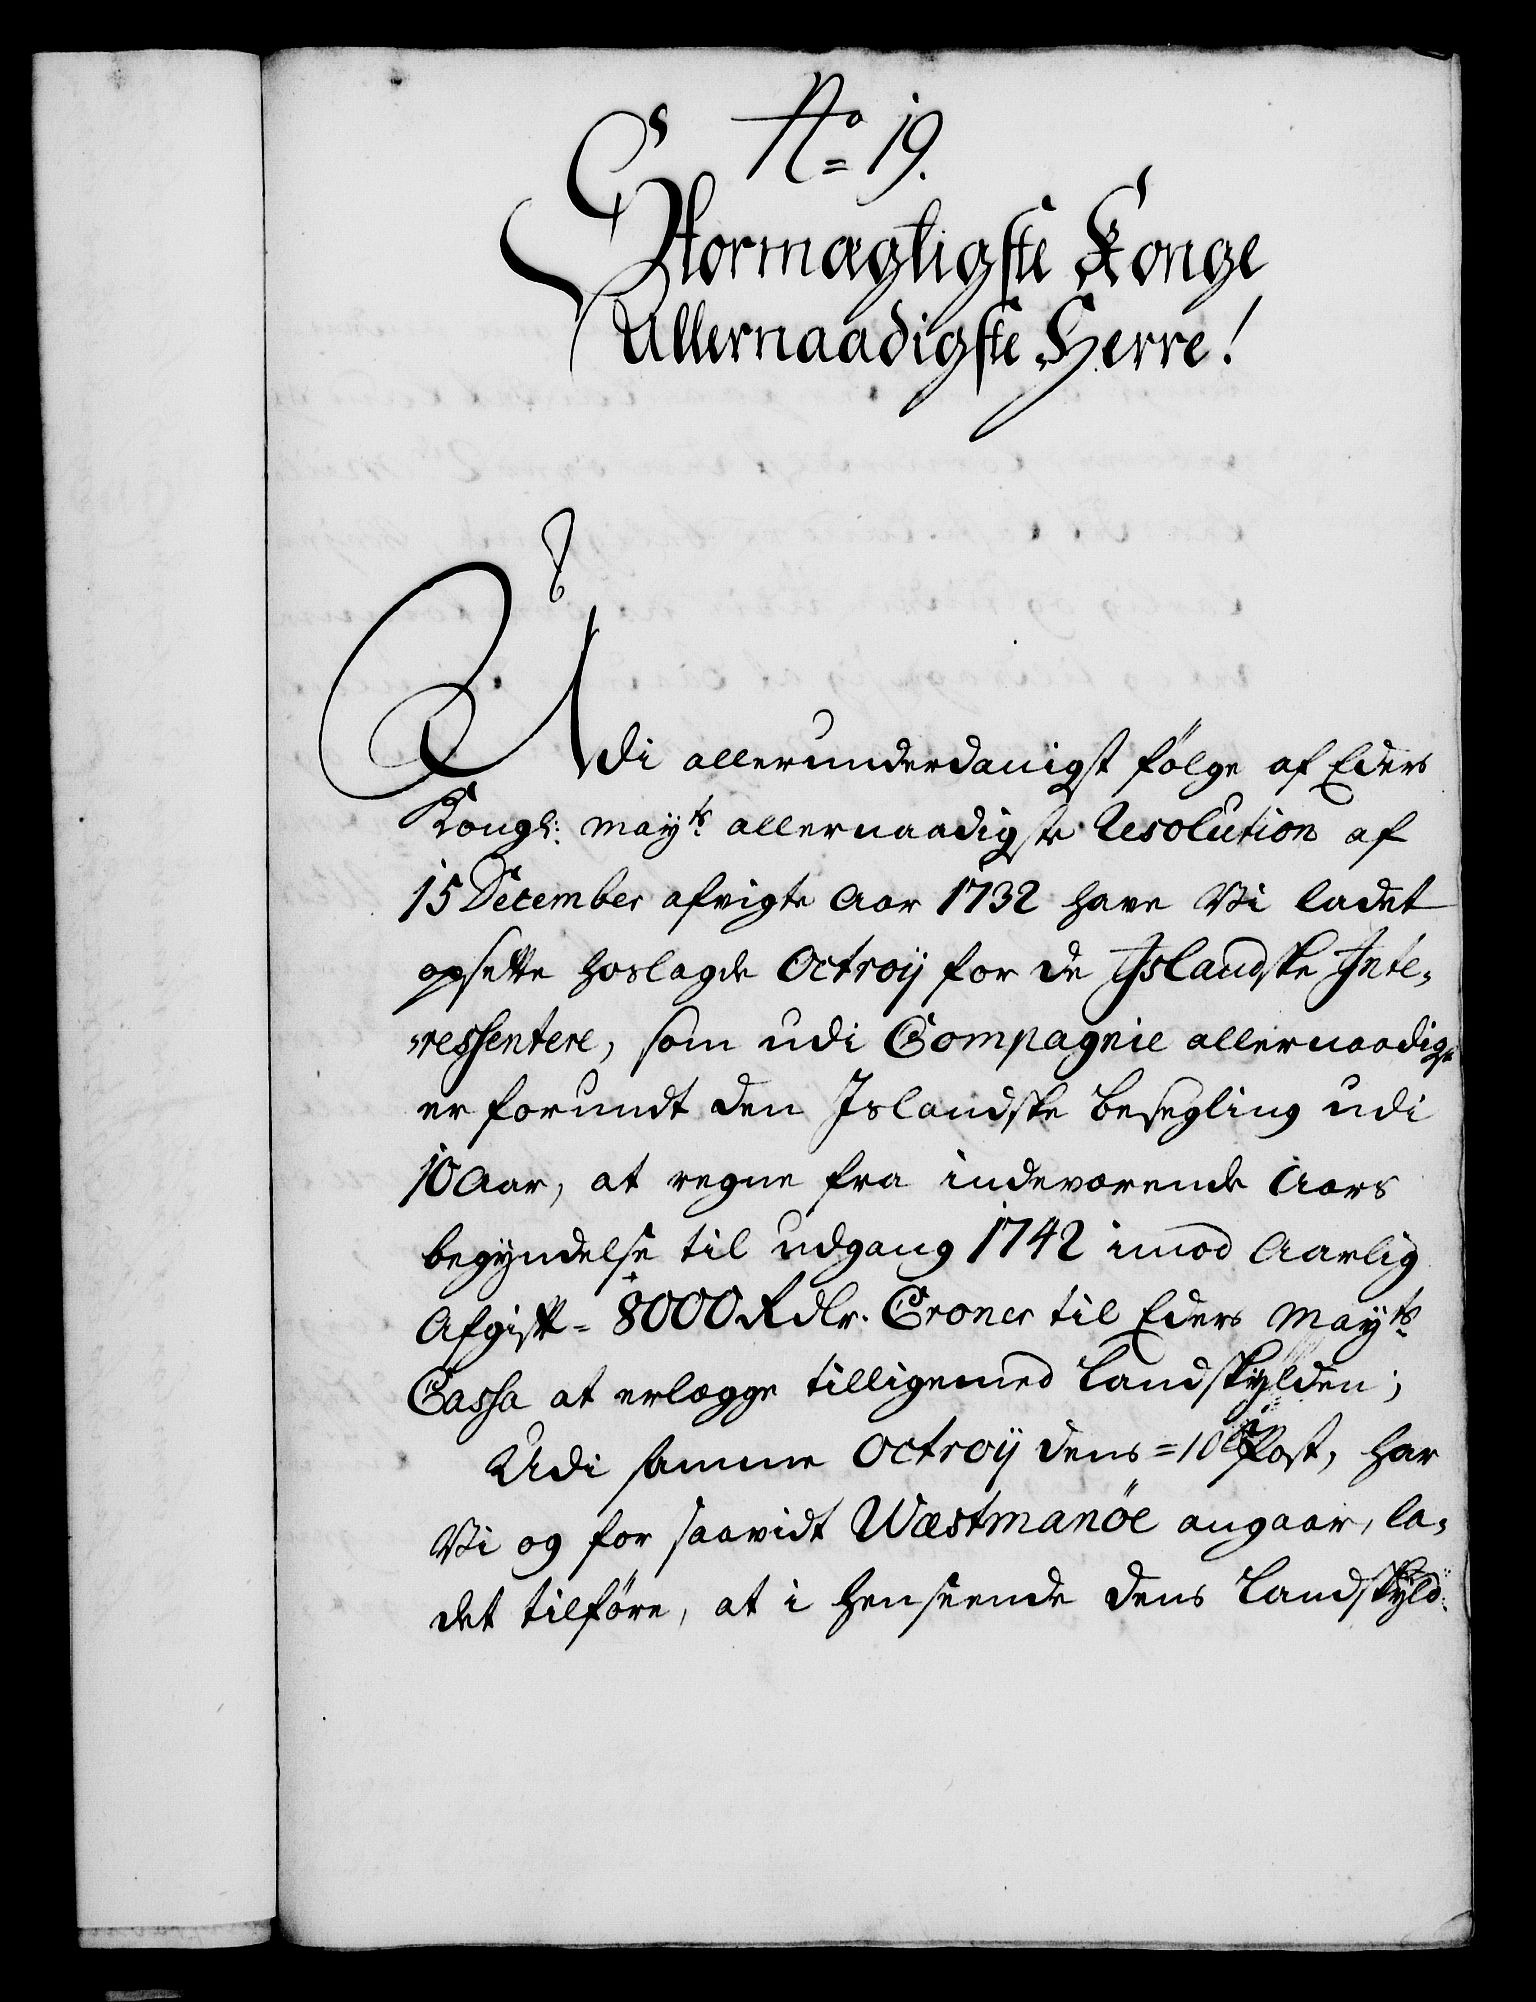 No 19.
Stormægtigste Konge
Allernaadigste Herre!
Udi allerunderdanigst følge af Eders
Kongl: mayts allernaadigste Resolution af
15 December afvigte Aar 1732 have Vi ladet
opsette hoslagde Octroij for de Islandske Inte,
ressentere, som udi Compagnie allernaadigst
er forundt den Islandske besegling udi
10 Aar, at regne fra indeværende Aars
begyndelse til udgang 1742 imod Aarlig
Afgift = 8000 Rdlr. Croner til Eders Mayts
Cassa at erlægge tilligemed Landskylden;
Udi samme Octroij dens = 10de Post, har
Vi og for saavidt Wæstmanöe angaar, la,
det tilføre, at i henseende dens Landskyld